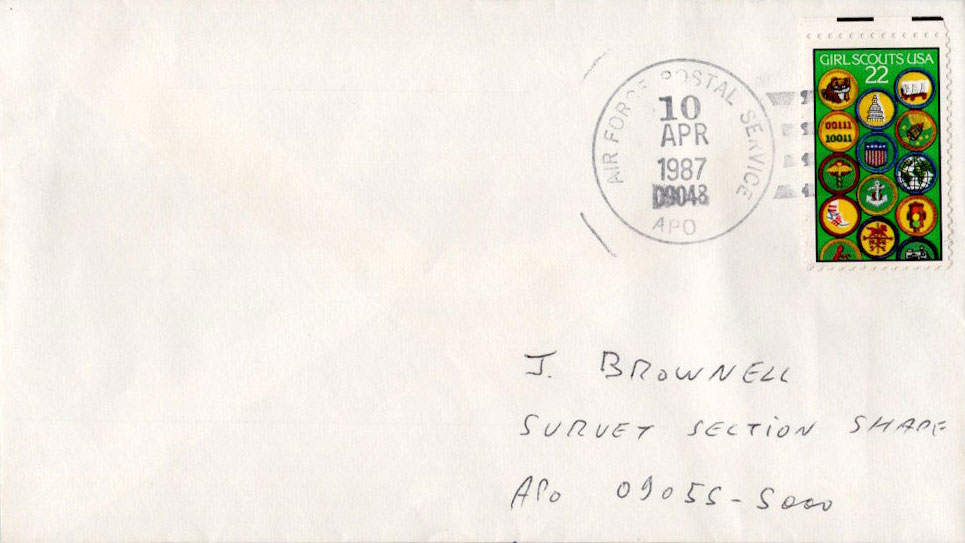 GIRL SCOUTS USA
22
00111
10011
AIR FORCE POSTAL SERVICE
10
APR
1987
09048
APO
J. BROWNELL
SURVEY SECTION SHAPE
APO 09055-5000